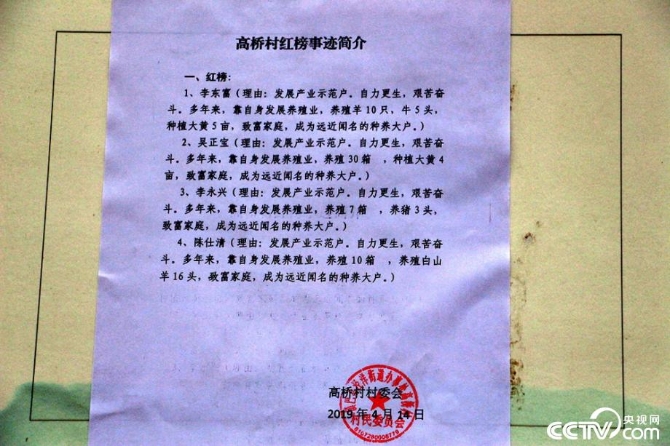 高桥村红榜事迹简介
一、红榜：
1、李东富（理由：发展产业示范户。自力更生，艰苦奋
斗。多年来，靠自身发展养殖业，养殖羊10只，牛5头，
种植大黄5亩，致富家庭，成为远近闻名的种养大户。）
2、吴正宝（理由：发展产业示范户。自力更生，艰苦奋
斗。多年来，靠自身发展养殖业，养殖30箱 ，种植大黄4
亩，致富家庭，成为远近闻名的种养大户。）
3、李永兴（理由：发展产业示范户。自力更生，艰苦奋
斗。多年来，靠自身发展养殖业，养殖7箱 ，养猪3头，
致富家庭，成为远近闻名的种养大户。）
4、陈仕清（理由：发展产业示范户。自力更生，艰苦奋
斗。多年来，靠自身发展养殖业，养殖10箱 ，养殖白山
羊16头，致富家庭，成为远近闻名的种养大户。）
高桥村村委会
2019年4月14日
村民委员会
央视网
CCTV.com